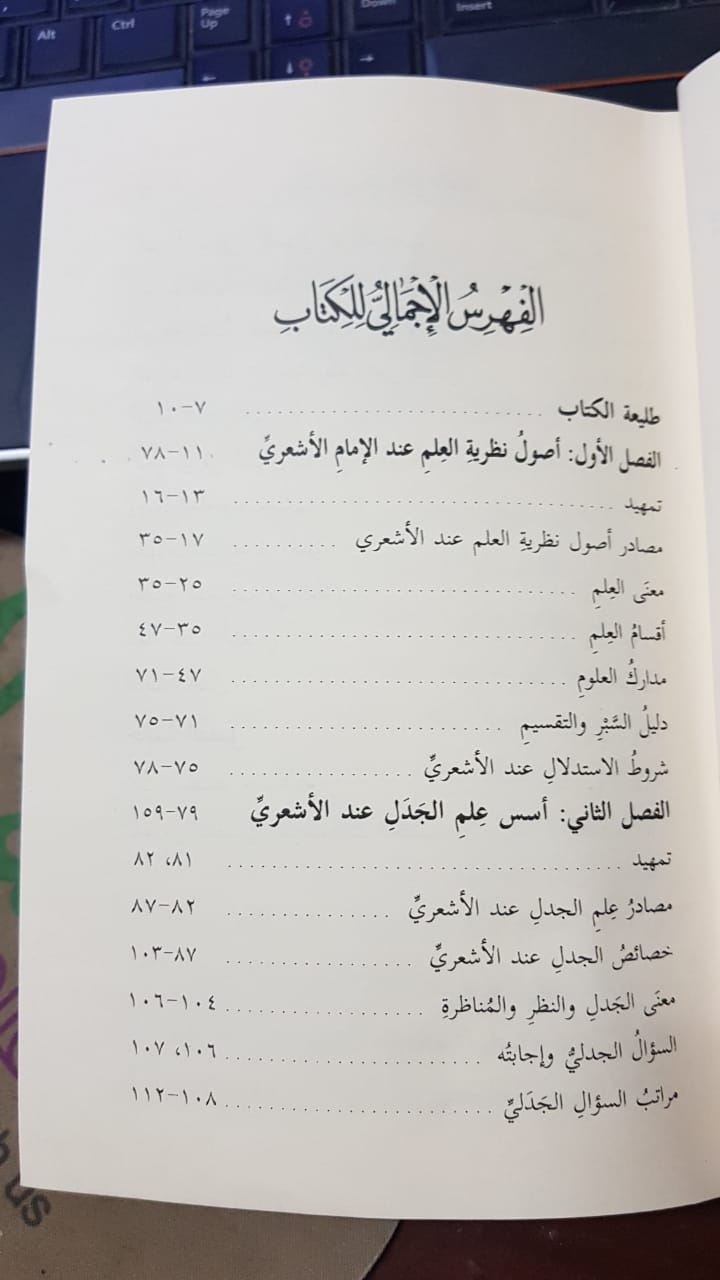 Alt
Ctrl
Page Up
Down
Insert
الفِهْرِسُ الإِجْمَالِيُّ لِلكِتَابِ
طليعة الكتاب ............................ ٧-١٠
الفصل الأول: أصولُ نظريةِ العِلمِ عند الإمامِ الأشعريِّ ١١-٧٨
تمهيد .................................... ١٣-١٦
مصادر أصول نظريةِ العلم عند الأشعري .......... ١٧-٣٥
معنَى العِلمِ ................................ ٢٥-٣٥
أقسامُ العِلمِ ................................ ٣٥-٤٧
مداركُ العلومِ ............................... ٤٧-٧١
دليلُ السَّبْرِ والتقسيمِ ......................... ٧١-٧٥
شروطُ الاستدلالِ عند الأشعريِّ ................. ٧٥-٧٨
الفصل الثاني: أسس عِلمِ الجَدَلِ عند الأشعريِّ ٧٩-١٥٩
تمهيد .................................... ٨١، ٨٢
مصادرُ عِلمِ الجدلِ عند الأشعريِّ ............... ٨٢-٨٧
خصائصُ الجدلِ عند الأشعريِّ ................. ٨٧-١٠٣
معنَى الجَدلِ والنظرِ والمُناظرةِ ................. ١٠٤-١٠٦
السؤالُ الجدليُّ وإجابتُه ...................... ١٠٦، ١٠٧
مراتبُ السؤالِ الجَدَليِّ ....................... ١٠٨-١١٢
us